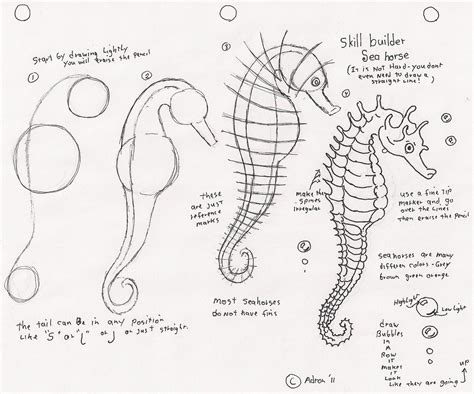 Start by drawing Lightly
you will erase the Pencil
1
2
3
Skill builder
Sea horse
(It is Not Hard - you dont
even Need to draw a
straight Line!)
these
are just
reference
marks
make the
Spines
Irregular
use a fine Tip
marker and go
over the Lines
then erase the Pencil
Seahorses are many
different colors - Grey
brown green orange
Most Seahorses
do not have fins
the tail can Be in any position
Like "S" or "l" or J or Just straight.
Highlight
Low Light
draw
Bubbles
In
A
Row
it
Makes
it
Look
Like they are going
UP
© Adron '11